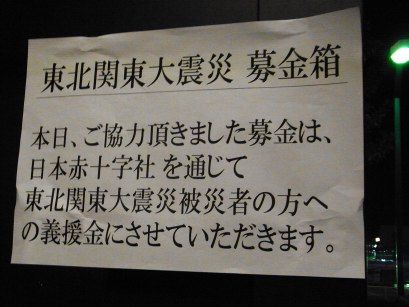 東北関東大震災 募金箱
本日、ご協力頂きました募金は、
日本赤十字社 を通じて
東北関東大震災被災者の方へ
の義援金にさせていただきます。